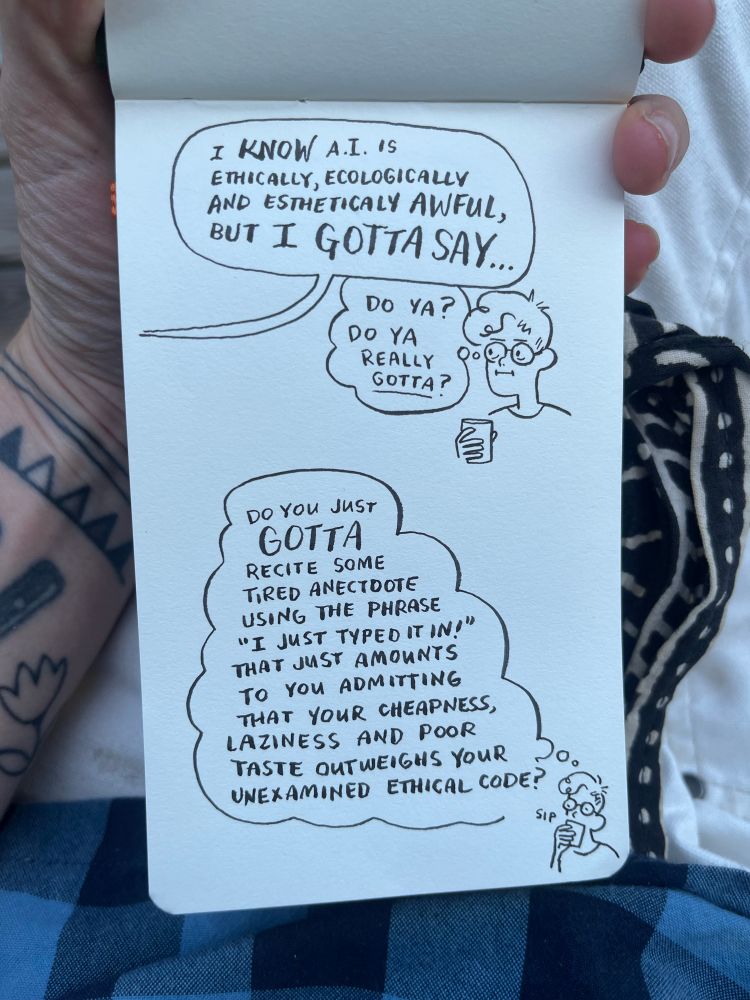 I KNOW A.I. IS
ETHICALLY, ECOLOGICALLY
AND ESTHETICALY AWFUL,
BUT I GOTTA SAY...
DO YA?
DO YA
REALLY
GOTTA?
DO YOU JUST
GOTTA
RECITE SOME
TIRED ANECTDOTE
USING THE PHRASE
"I JUST TYPED IT IN!"
THAT JUST AMOUNTS
TO YOU ADMITTING
THAT YOUR CHEAPNESS,
LAZINESS AND POOR
TASTE OUTWEIGHS YOUR
UNEXAMINED ETHICAL CODE?
SIP